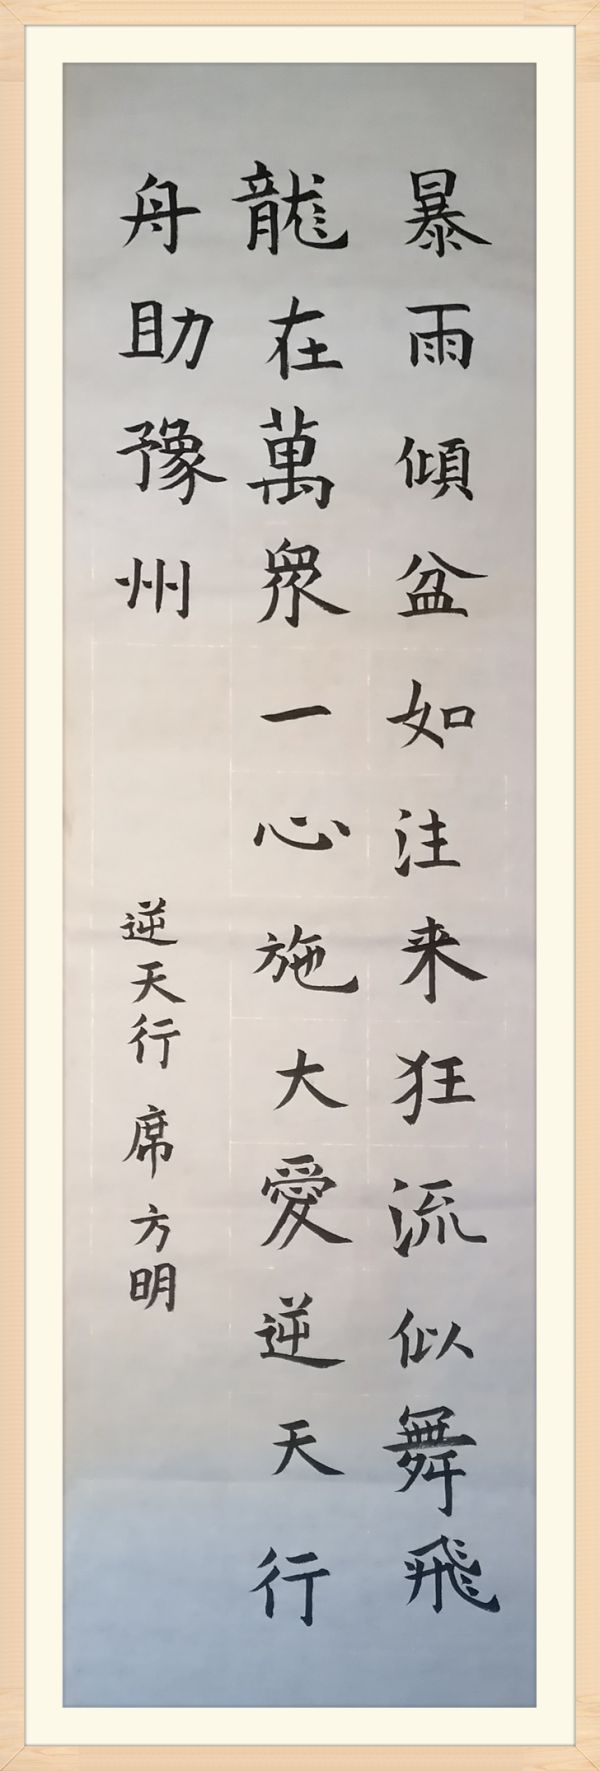 暴雨傾盆如注来狂流似舞飛
龍在萬眾一心施大愛逆天行
舟助豫州
逆天行 席方明